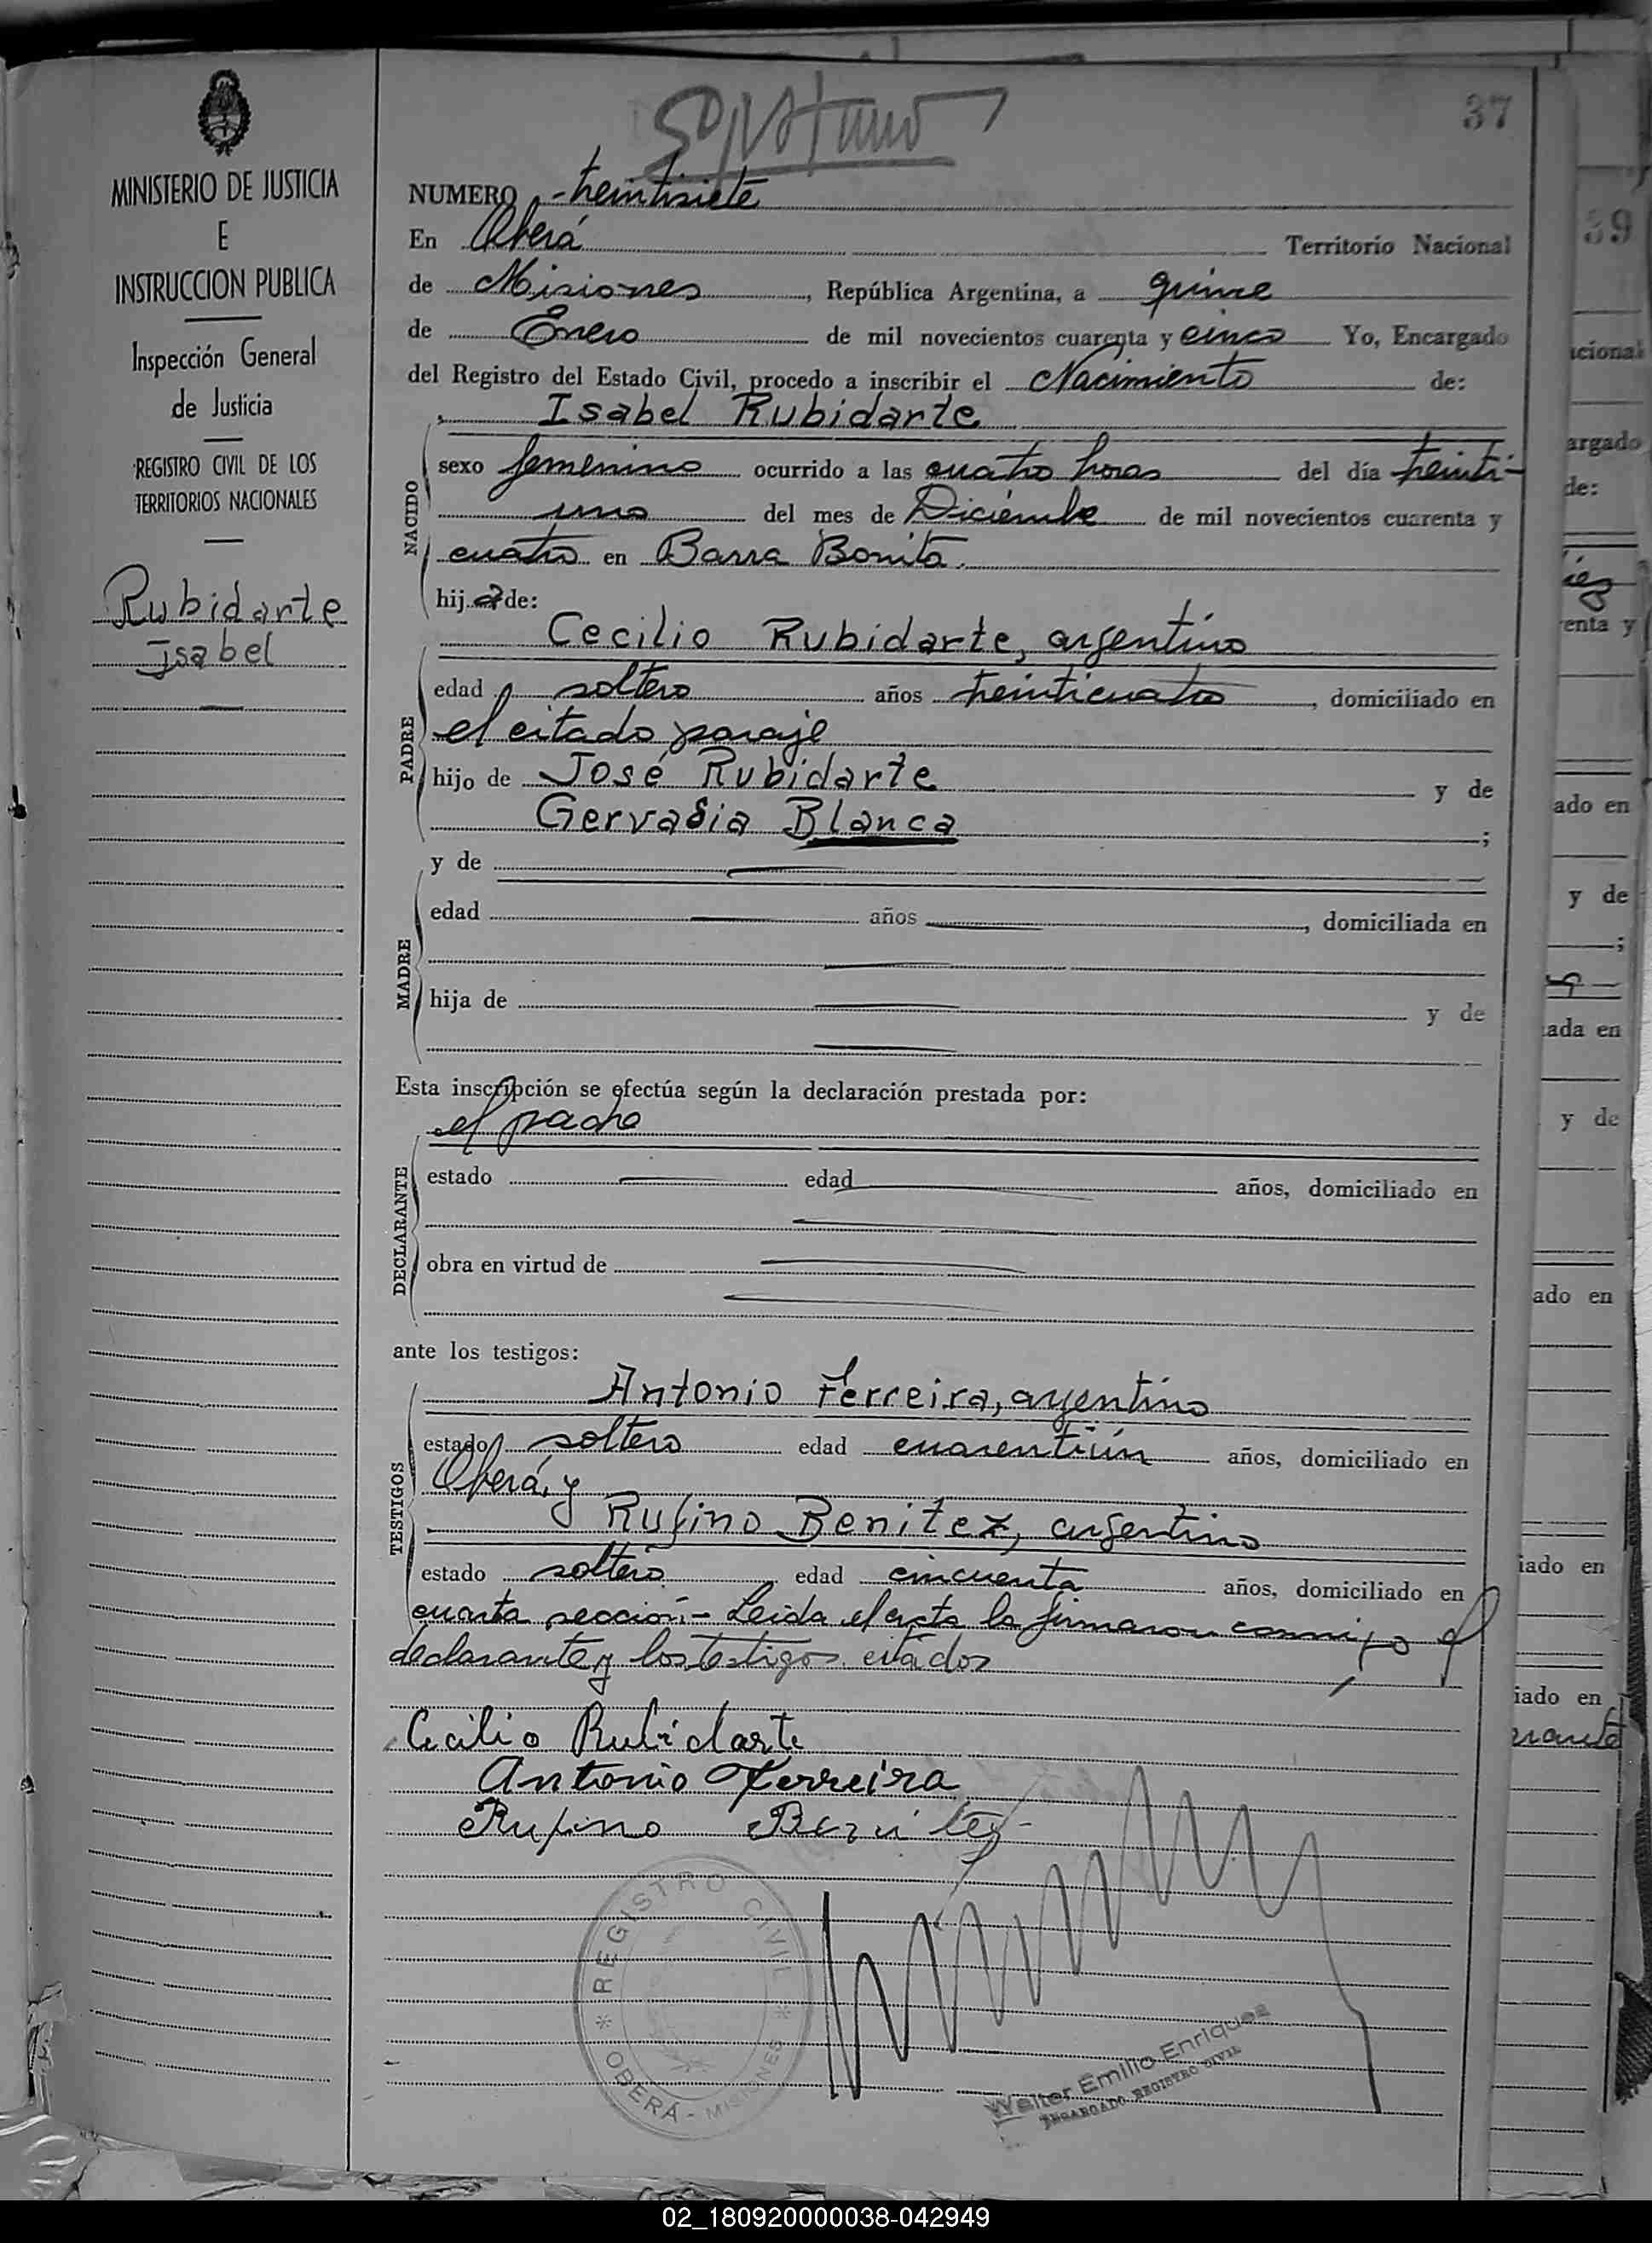 37
MINISTERIO DE JUSTICIA
E
INSTRUCCION PUBLICA
Inspección General
de Justicia
REGISTRO CIVIL DE LOS
TERRITORIOS NACIONALES
Rubidarte
Isabel
NUMERO treintisiete
En Oberá Territorio Nacional
de Misiones, República Argentina, a quince
de Enero de mil novecientos cuarenta y cinco Yo, Encargado
del Registro del Estado Civil, procedo a inscribir el Nacimiento de:
Isabel Rubidarte
NACIDO
sexo femenino ocurrido a las cuatro horas del día treinti-
uno del mes de Diciembre de mil novecientos cuarenta y
cuatro en Barra Bonita.
hija de:
Cecilio Rubidarte, argentino
PADRE
edad soltero años treinticuatro, domiciliado en
el citado paraje
hijo de José Rubidarte y de
Gervasia Blanca;
y de
MADRE
edad años, domiciliada en
hija de y de
Esta inscripción se efectúa según la declaración prestada por:
el padre
DECLARANTE
estado edad años, domiciliado en
obra en virtud de
ante los testigos:
TESTIGOS
Antonio Ferreira, argentino
estado soltero edad cuarentiún años, domiciliado en
Oberá, y
Rufino Benitez, argentino
estado soltero edad cincuenta años, domiciliado en
cuarta sección.- Leida el acta la firmaron conmigo el
declarante y los testigos citados
Cecilio Rubidarte
Antonio Ferreira
Rufino Benitez
REGISTRO CIVIL
OBERÁ - MISIONES
Walter Emilio Enriquez
ENCARGADO REGISTRO CIVIL
39
acional
argado
de:
enta y
ado en
y de
;
ada en
y de
ado en
iado en
iado en
02_180920000038-042949